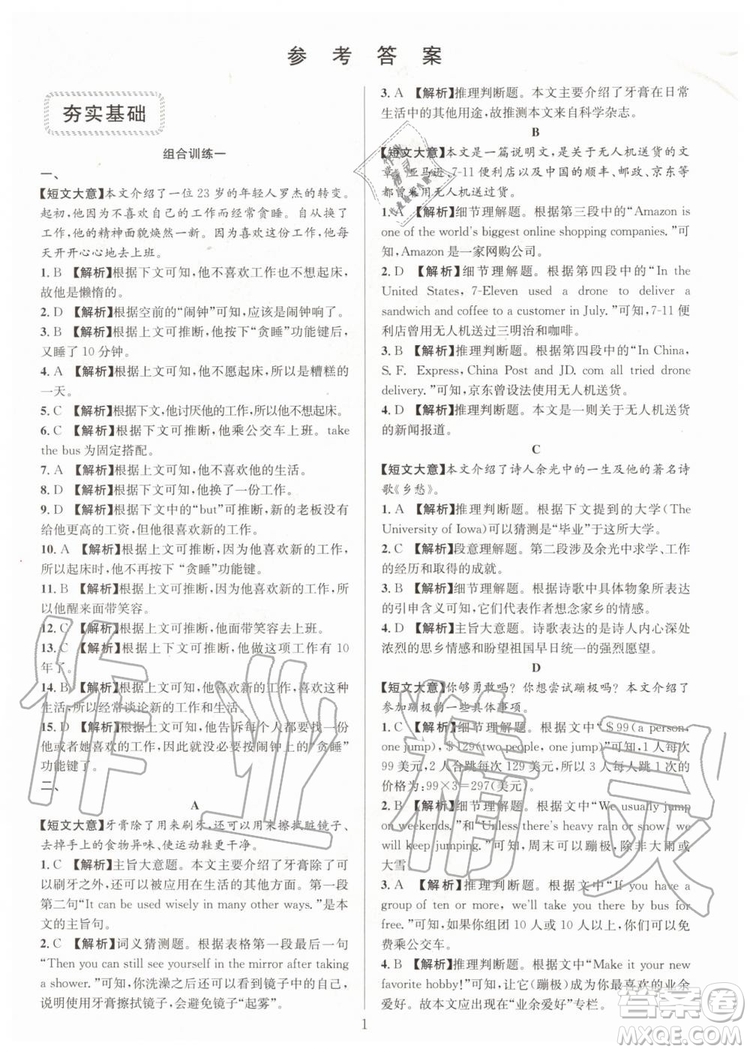 参考答案
夯实基础
组合训练一
一、
【短文大意】本文介绍了一位 23 岁的年轻人罗杰的转变。
起初,他不喜欢自己的工作而经常贪睡。自从换了工作
后,他的精神面貌焕然一新。他喜欢自己的新工作,每
天开开心心地去上班。
1. B 【解析】根据下文可知,他不喜欢工作也不想起床,
故他是懒惰的。
2. D 【解析】根据空前的“闹钟”可知,应该是闹钟响了。
3. B 【解析】根据上文可推断,他按下“贪睡”功能键后,
又睡了 10 分钟。
4. A 【解析】根据上文可推断,他不想起床,所以是糟糕的
一天。
5. C 【解析】根据下文,他讨厌他的工作,所以很疲倦。
6. C 【解析】根据下文可推断,他乘公交车上班。take
the bus 为固定搭配。
7. A 【解析】根据上文可知,他不喜欢他的生活。
8. D 【解析】根据上文可推断,他不喜欢他的工作。
9. D 【解析】根据下文中的“but”可推断,新的老板没有
给他更高的工资,但是他很喜欢新的工作。
10. A 【解析】根据上文可推断,因为他喜欢新的工作,所
以起床时,他不再按下“贪睡”功能键。
11. B 【解析】根据上文可推断,因为他喜欢新的工作,
所以他醒来很兴奋。
12. C 【解析】根据上文可推断,他面带微笑。
13. C 【解析】根据上下文可知,他做这份工作有 10
年了。
14. B 【解析】根据上文可知,他喜欢新的工作和生活,
所以经常谈论新的工作和生活。
15. D 【解析】根据上文可知,虽然他没有更多的工资,
但他或者他的妻子都没有必要按闹钟的“贪睡”功
能键。
二、
A
【短文大意】牙膏除了用来刷牙,还可以用来擦拭脏镜子、
去掉手上的食物异味、使运动鞋更干净。
1. C 【解析】主旨大意题。本文主要介绍了牙膏除了可
以刷牙之外,还可以用在其他许多方面。第一段
第二句“It can be used wisely in many other ways.”是本
文的主旨句。
2. C 【解析】词义猜测题。根据表格第一段最后一句
“Then you can still see yourself in the mirror after taking
a shower.”可知,你洗澡之后还可以看到镜子中的自己,
说明使用牙膏擦拭镜子,会避免镜子“起雾”。
3. A 【解析】推理判断题。本文主要介绍了牙膏在日常
生活中的其他用途,故推测本文来自科学杂志。
B
【短文大意】本文是一篇说明文,是有关无人机送货的文
章。亚马逊、7-11 便利店以及中国的顺丰、邮政、京东等
都尝试采用无人机送货。
1. A 【解析】细节理解题。根据第三段中的“Amazon is
one of the world's biggest online shopping companies.”可
知,Amazon 是一家网购公司。
2. D 【解析】细节理解题。根据第四段中的“In the
United States, 7-Eleven used a drone to deliver a
sandwich and coffee to a customer in July.”可知,7-11 便
利店曾用无人机送过三明治和咖啡。
3. B 【解析】推理判断题。根据第四段中的“In China,
S. F. Express, China Post and JD. com all tried drone
delivery.”可知,京东曾设法使用无人机送货。
4. D 【解析】推理判断题。本文是一则关于无人机送货
的新闻报道。
C
【短文大意】本文介绍了诗人余光中的一生及他的著名诗
歌《乡愁》。
1. A 【解析】推理判断题。根据下文提到的大学(The
University of Iowa)可以猜测是“毕业”于这所大学。
2. C 【解析】段意理解题。第二段涉及余光中求学、工作
的经历和取得的成就。
3. B 【解析】推理判断题。根据诗歌中具体物象所表达
的引申含义可知,作者想念家乡的情感。
4. D 【解析】主旨大意题。诗歌表达的是诗人内心深处
浓烈的思乡情感和盼望祖国早日统一的强烈愿望。
D
【短文大意】你够勇敢吗?你想尝试蹦极吗?本文介绍了
参加蹦极的一些具体事项。
1. C 【解析】细节理解题。根据文中“$ 99 (a person,
one jump), $ 129 (two people, one jump)”可知,1 人跳每次
99 美元,2 人合跳每次 129 美元,所以三个人每人跳一次
的价格为:99×3=297(美元)。
2. B 【解析】细节理解题。根据文中“We usually jump
on weekends.”和“Unless there's heavy rain or snow, we
will keep jumping.”可知,周末可以蹦极,除非大雨或者
大雪。
3. A 【解析】推理判断题。根据文中“If you have a
group of ten or more, we'll take you there by bus for
free.”可知,如果你组团 10 人或 10 人以上,可以免
费乘公交车。
4. B 【解析】推理判断题。根据文中“Make it your new
favorite hobby!”可知,可以让它(蹦极)成为你新的业余
爱好。故本文应出现在“业余爱好”专栏。
1
作业精灵
答案圈